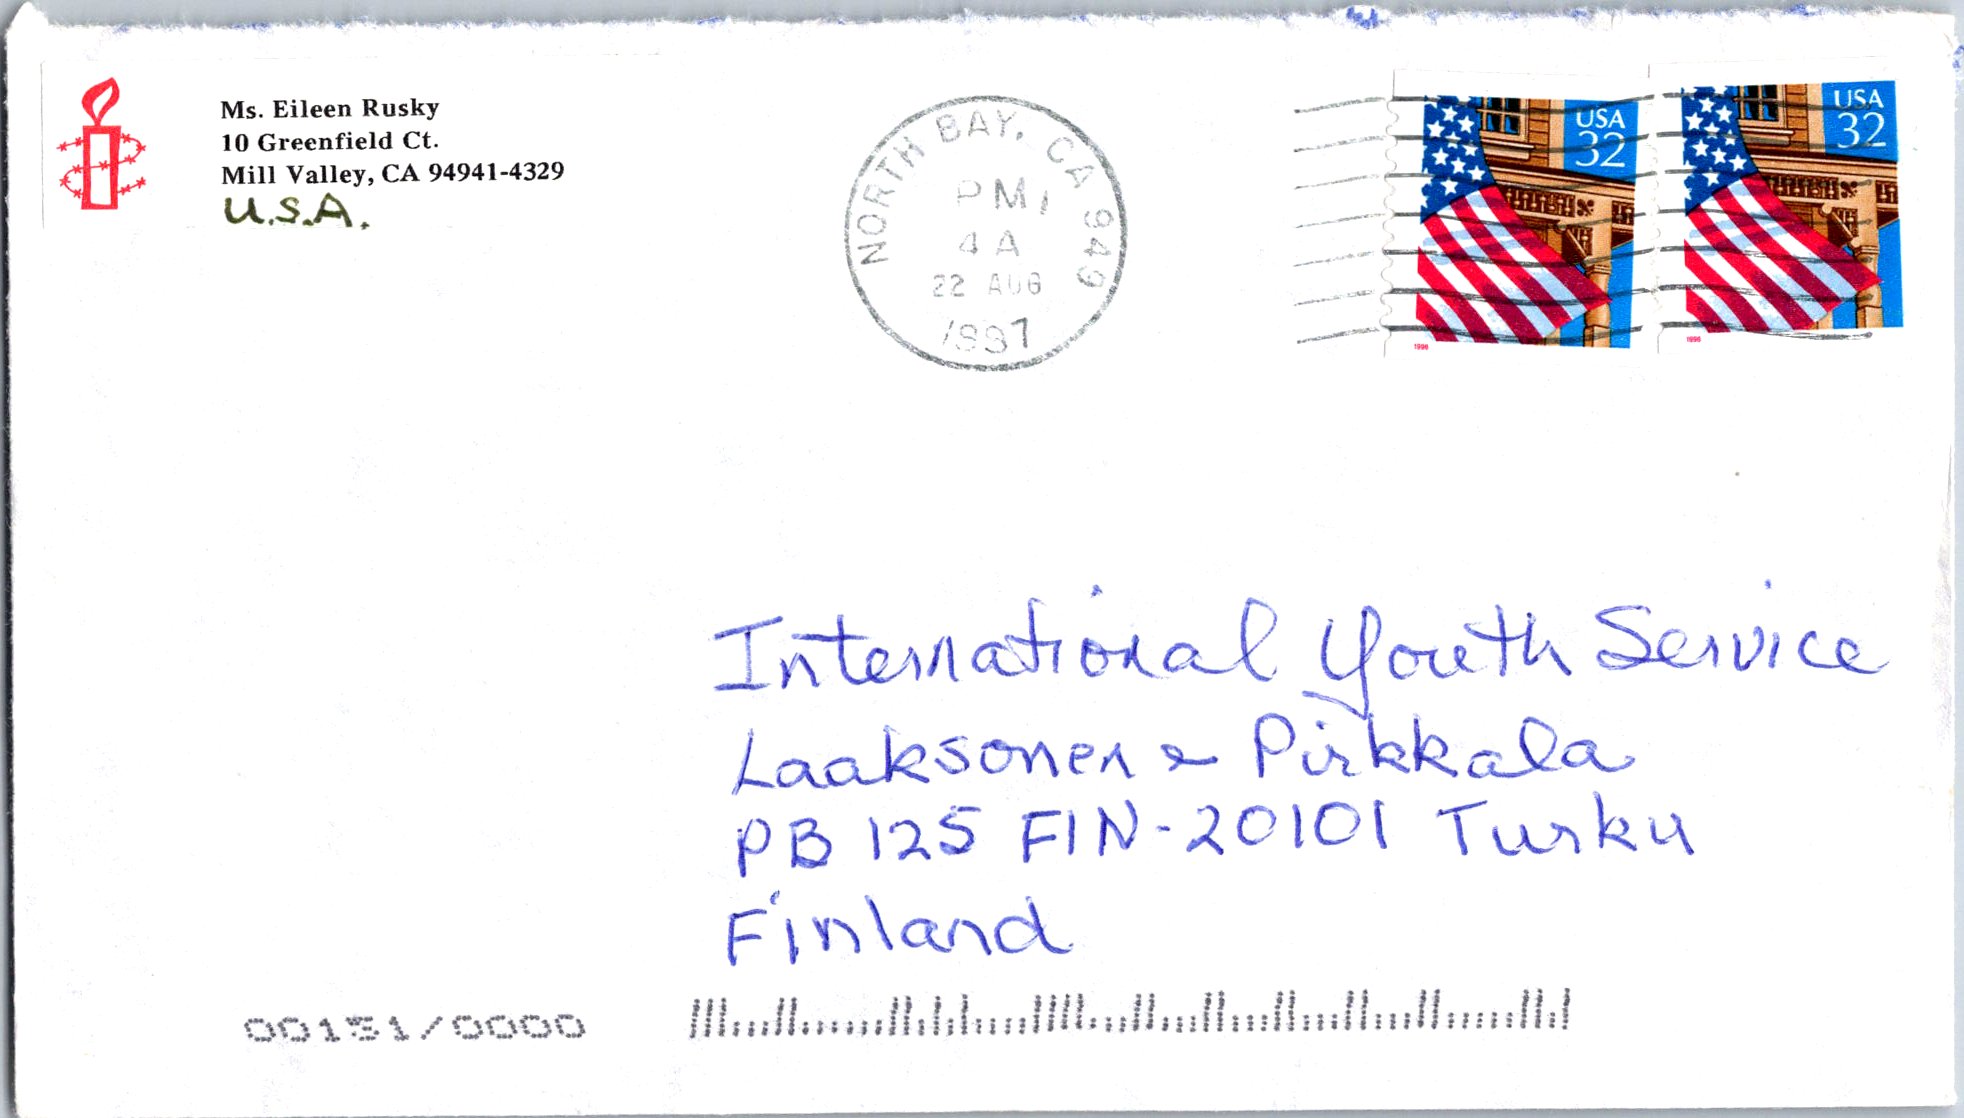 Ms. Eileen Rusky
10 Greenfield Ct.
Mill Valley, CA 94941-4329
U.S.A.
NORTH BAY, CA 949
PM
4A
22 AUG
1997
USA
32
1996
USA
32
1996
International Youth Service
Laaksonen & Pirkkala
PB 125 FIN-20101 Turku
Finland
00151/0000